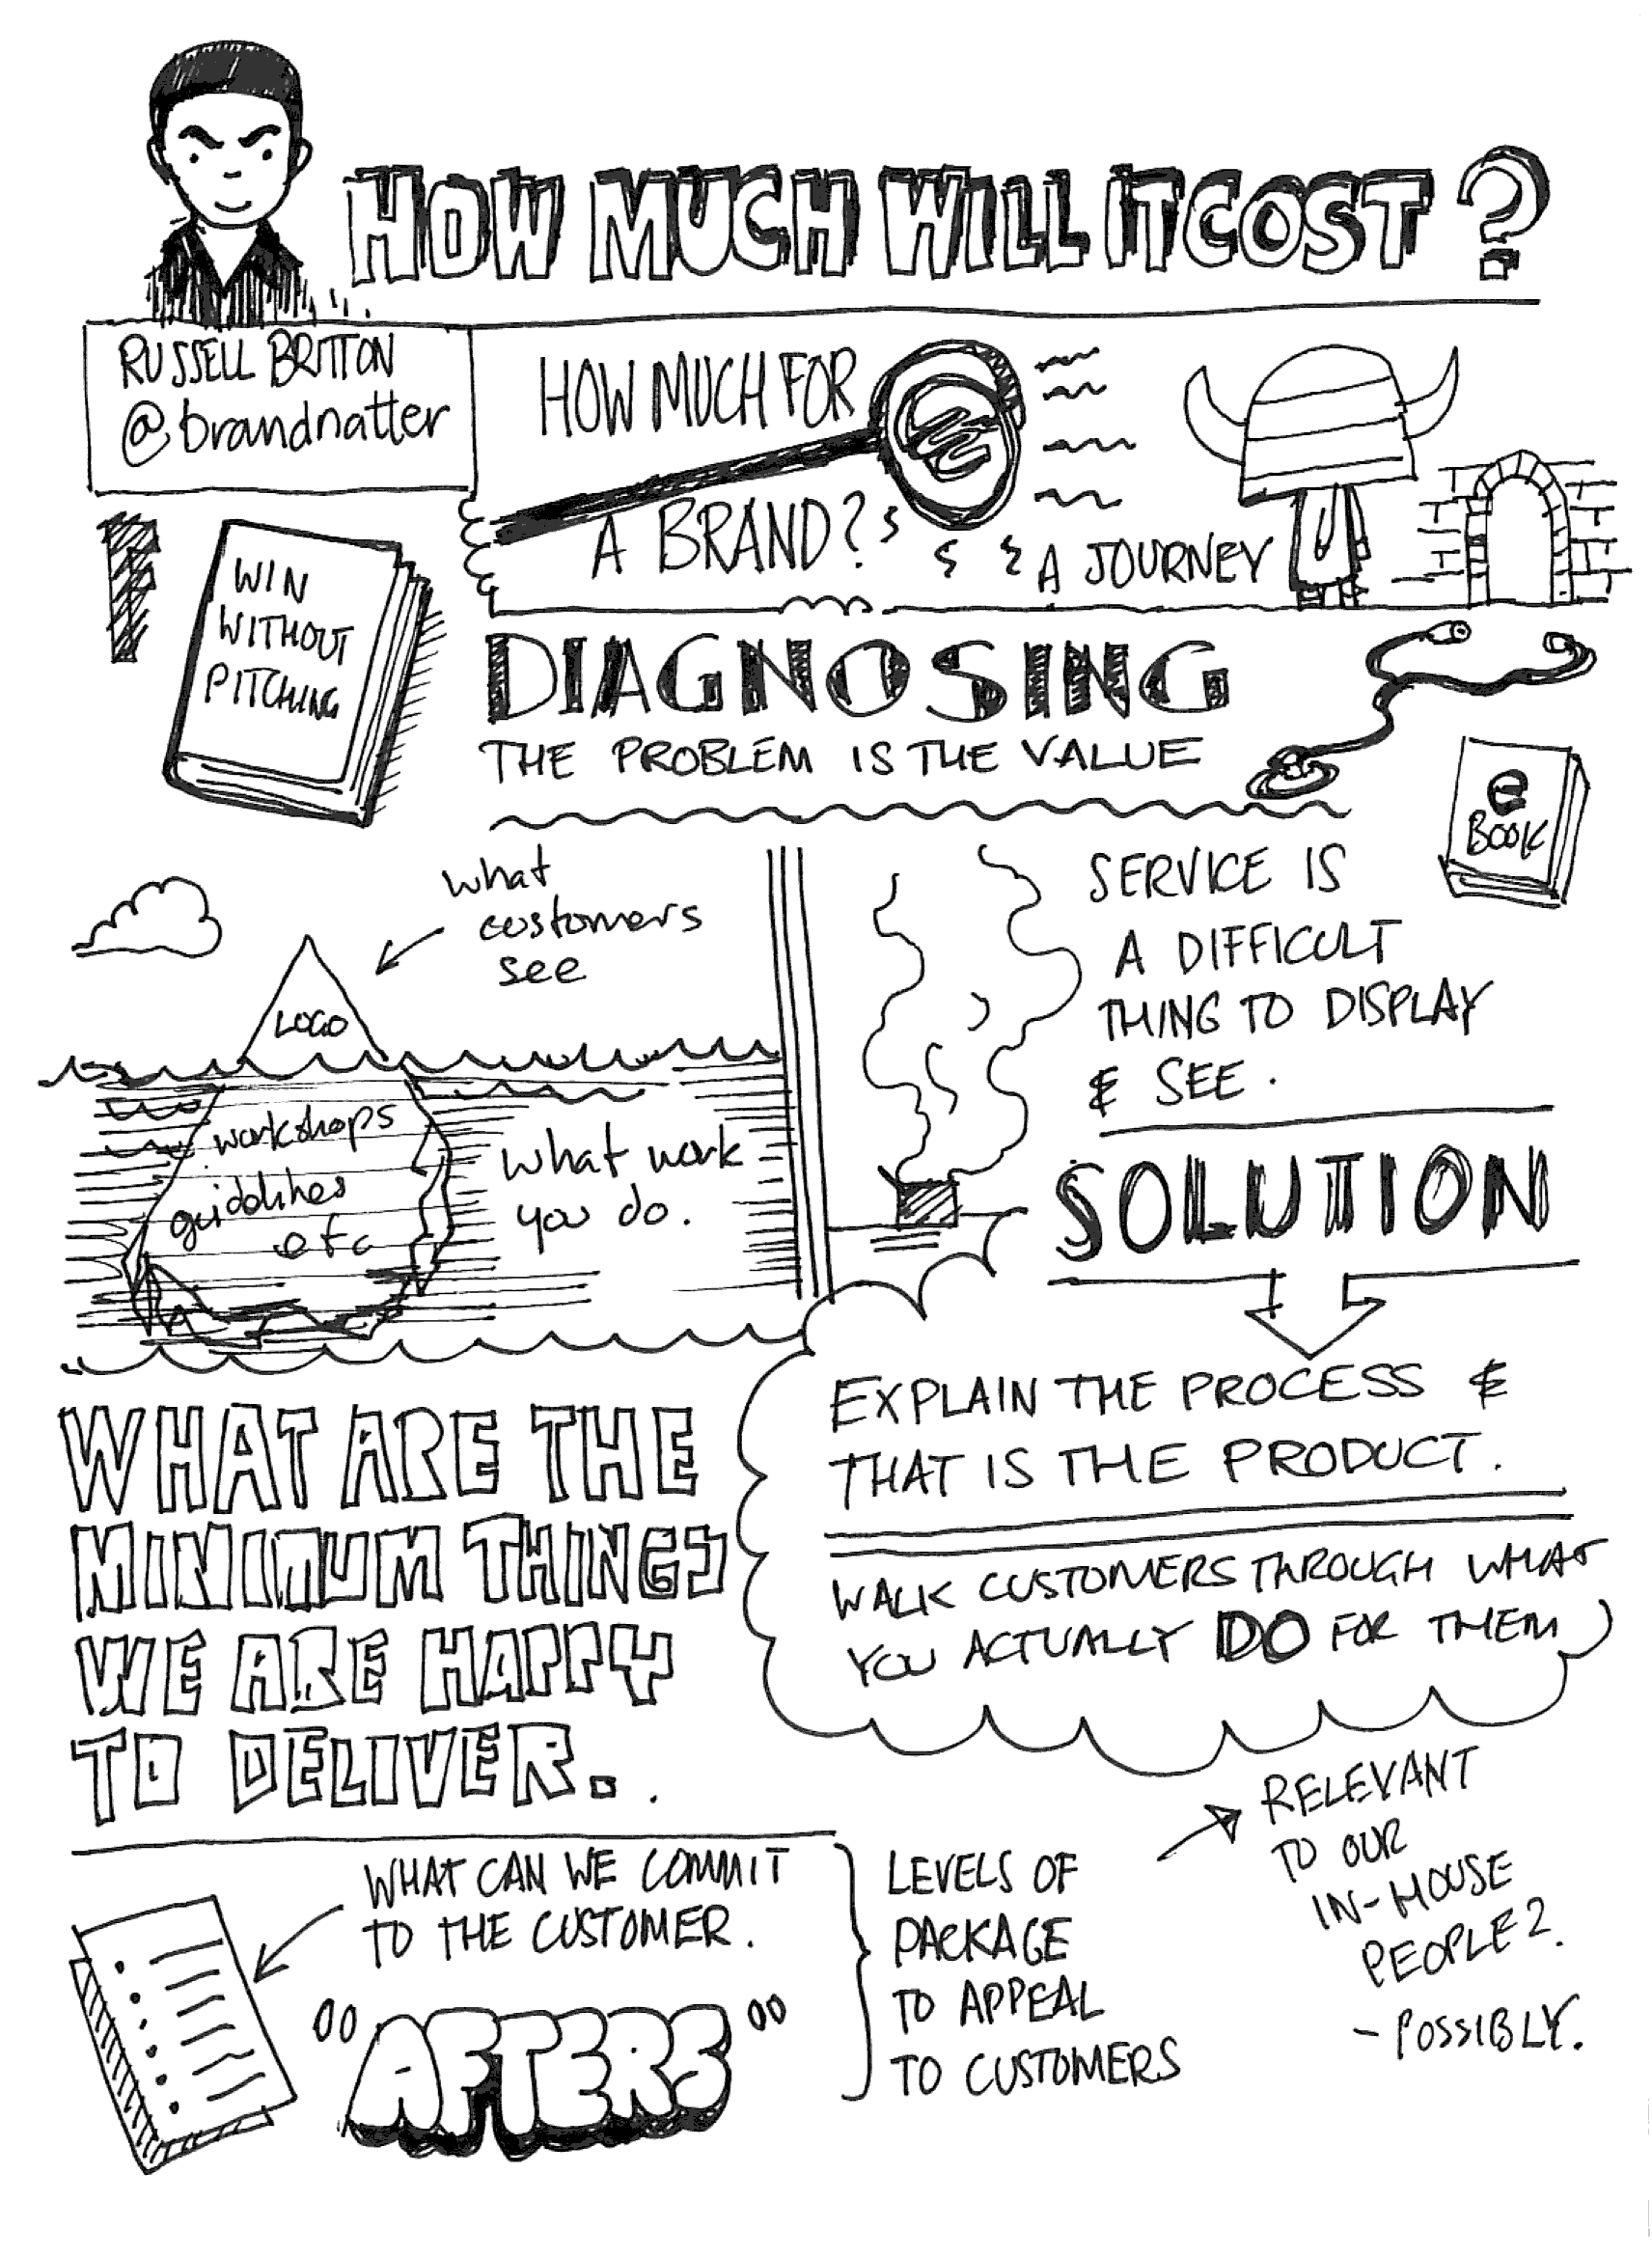 HOW MUCH WILL IT COST?
RUSSELL BRITTON
@brandnatter
HOW MUCH FOR
A BRAND?
& A JOURNEY
WIN
WITHOUT
PITCHING
DIAGNOSING
THE PROBLEM IS THE VALUE
e
BOOK
what
customers
see
LOGO
workshops
guidelines
etc
what work
you do.
SERVICE IS
A DIFFICULT
THING TO DISPLAY
& SEE.
SOLUTION
EXPLAIN THE PROCESS &
THAT IS THE PRODUCT.
WALK CUSTOMERS THROUGH WHAT
YOU ACTUALLY DO FOR THEM
WHAT ARE THE
MINIMUM THINGS
WE ARE HAPPY
TO DELIVER.
WHAT CAN WE COMMIT
TO THE CUSTOMER.
"AFTERS"
LEVELS OF
PACKAGE
TO APPEAL
TO CUSTOMERS
RELEVANT
TO OUR
IN-HOUSE
PEOPLE?
- POSSIBLY.